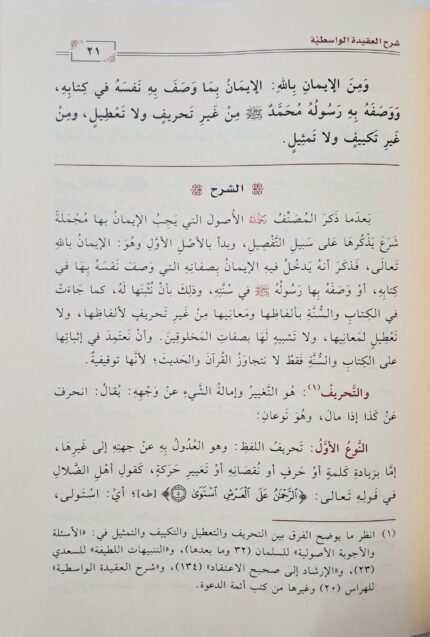 شرح العقيدة الواسطيّة
٢١
وَمِنَ الإيمانِ باللهِ: الإيمَانُ بِمَا وَصَفَ بِهِ نَفسَهُ في كِتابِهِ،
وَوَصَفَهُ بِهِ رَسُولُهُ مُحَمَّدٌ ﷺ مِنْ غَيرِ تَحريفٍ ولا تَعْطِيلٍ، ومِنْ
غَيرِ تَكييفٍ ولا تَمثِيلٍ.
الشرح
بَعدَما ذَكرَ المُصَنِّفُ رحمه الله الأُصولَ التي يَجِبُ الإيمانُ بها مُجْمَلةً
شَرَعَ يَذْكُرها عَلى سَبيلِ التَّفْصِيلِ، وبدأ بالأصْلِ الأوَّلِ وهُوَ: الإيمانُ باللهِ
تَعالَى، فَذكَرَ أنهُ يَدخُلُ فيهِ الإيمانُ بصِفاتِهِ التي وَصفَ نَفسَهُ بِهَا في
كِتابِهِ، أوْ وَصَفَهُ بِها رَسُولُهُ ﷺ في سُنَّتِهِ، وذلِكَ بأنْ نُثْبِتَها لَهُ، كما جَاءَتْ
في الكِتابِ والسُّنَّةِ بألفاظِهَا ومَعانِيها مِنْ غَيْرِ تَحريفٍ لألفاظِها، ولا
تَعْطِيلٍ لمَعانِيها، ولا تَشبيهٍ لَها بصِفاتِ المَخلوقينَ. وأنْ نَعتَمِدَ في إثباتِها
على الكِتابِ والسُّنَّةِ فَقطْ لا نتجاوَزُ القُرآنَ والحَديثَ؛ لأنَّها توقِيفِيةٌ.
والتَّحريفُ(١): هُو التَّغييرُ وإمالةُ الشَّيءِ عنْ وَجْهِهِ: يُقالُ: انحرفَ
عَنْ كَذا إذا مالَ، وهُوَ نَوعانِ:
النَّوعُ الأوَّلُ: تَحريفُ اللفظِ: وهو العُدُولُ بِهِ عنْ جهتِهِ إلى غَيرِها،
إمَّا بزيادةِ كَلمةٍ أوْ حَرفٍ أو نُقصَانِهِ أوْ تَغْييرِ حَركةٍ، كقَولِ أَهْلِ الضَّلالِ
في قَولِهِ تَعالى: ﴿ٱلرَّحْمَٰنُ عَلَى ٱلْعَرْشِ ٱسْتَوَىٰ ٥﴾ [طه]؛ أيْ: اسْتَولَى،
(١) انظر ما يوضح الفرق بين التحريف والتعطيل والتكييف والتمثيل في: «الأسئلة
والأجوبة الأصولية» للسلمان (٣٢ وما بعدها)، و«التنبيهات اللطيفة» للسعدي
(٢٣)، و«الإرشاد إلى صحيح الاعتقاد» (١٣٤)، و«شرح العقيدة الواسطية»
للهراس (٢٠) وغيرها من كتب أئمة الدعوة.